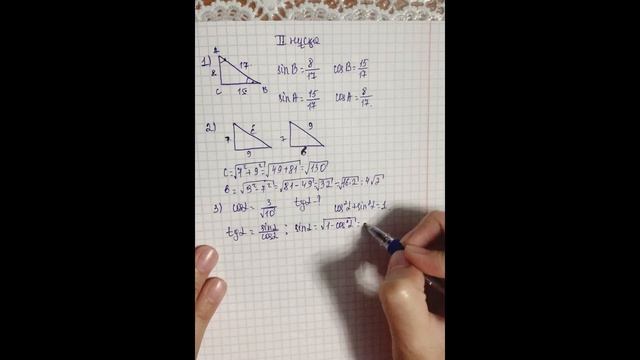 II нұсқа
1) A 17 8 C 15 B
sin B = 8/17 cos B = 15/17
sin A = 15/17 cos A = 8/17.
2) 7 c 9 7 9 B
C = √7²+9² = √49+81 = √130
B = √9²-7² = √81-49 = √32 = √16·2 = 4√2
3) cosα = 3/√10 tgα-? cos²α+sin²α=1
tgα = sinα/cosα ; sinα = √1-cos²α =